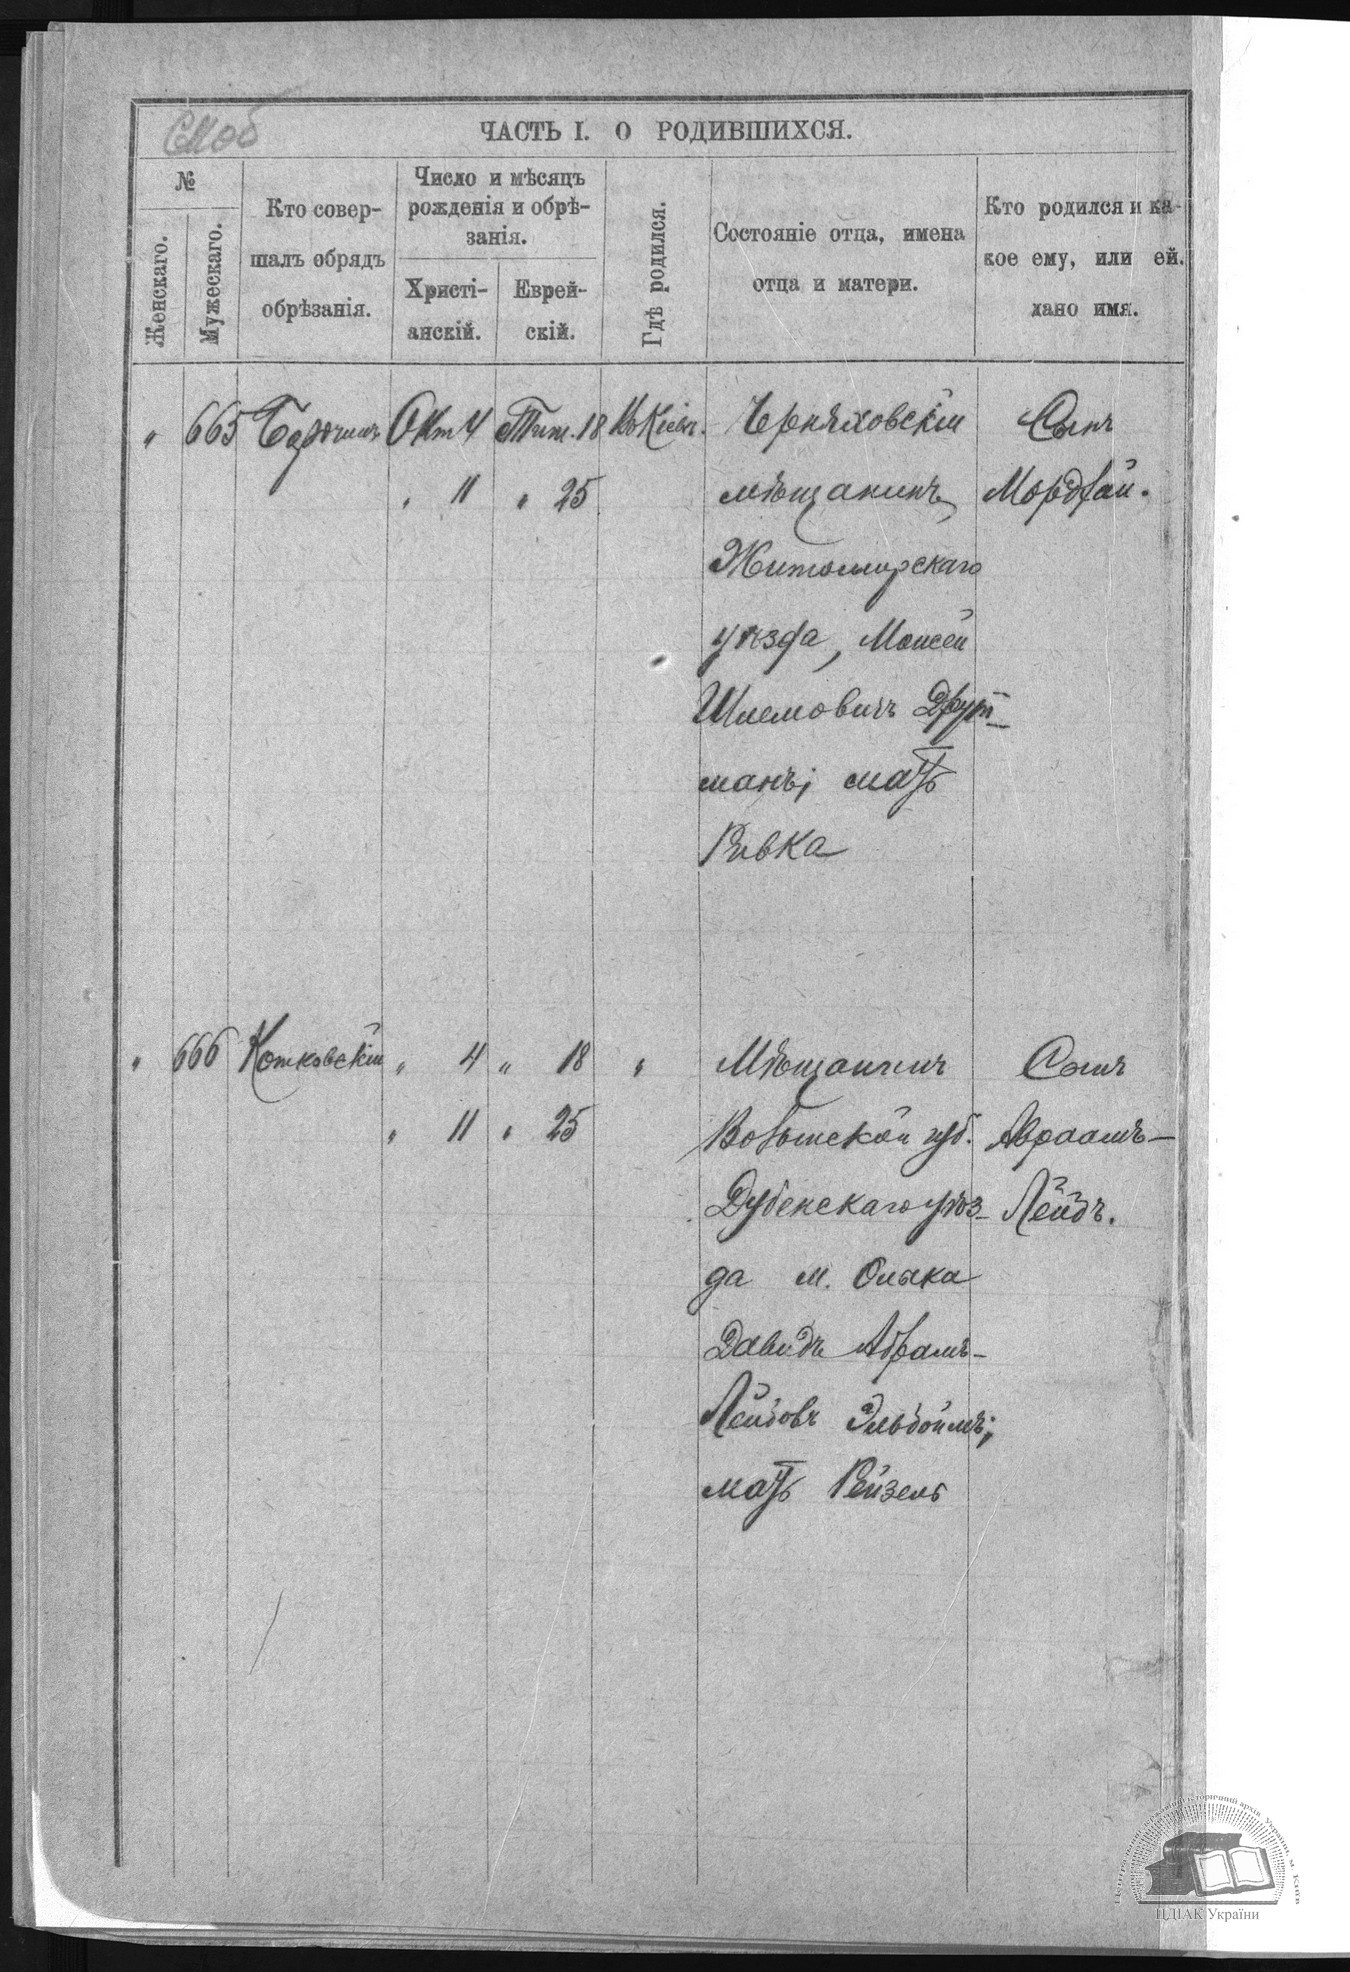 ЧАСТЬ I. О РОДИВШИХСЯ.
№
Женскаго.
Мужескаго.
Кто совер-
шалъ обрядъ
обрѣзанія.
Число и мѣсяцъ
рожденія и обрѣ-
занія.
Христі-
анскій.
Еврей-
скій.
Гдѣ родился.
Состояніе отца, имена
отца и матери.
Кто родился и ка-
кое ему, или ей.
дано имя.
" 665 Окт 4 Тиш. 18 Въ Кіевѣ. Черняховскій Сынъ
" 11 " 25 мѣщанинъ, Мордхай.
Житомирскаго
уѣзда, Моисей
Шлемовичъ
манъ; мать
Ривка
" 666 Котковскій " 4 " 18 " Мѣщанинъ Сынъ
" 11 " 25 Волынской губ. Авраамъ-
Дубенскаго уѣз- Лейбъ.
да м. Олыка
Давидъ Абрамъ-
Лейбовъ Эльбоймъ;
мать Рейзель
ЦДІАК України